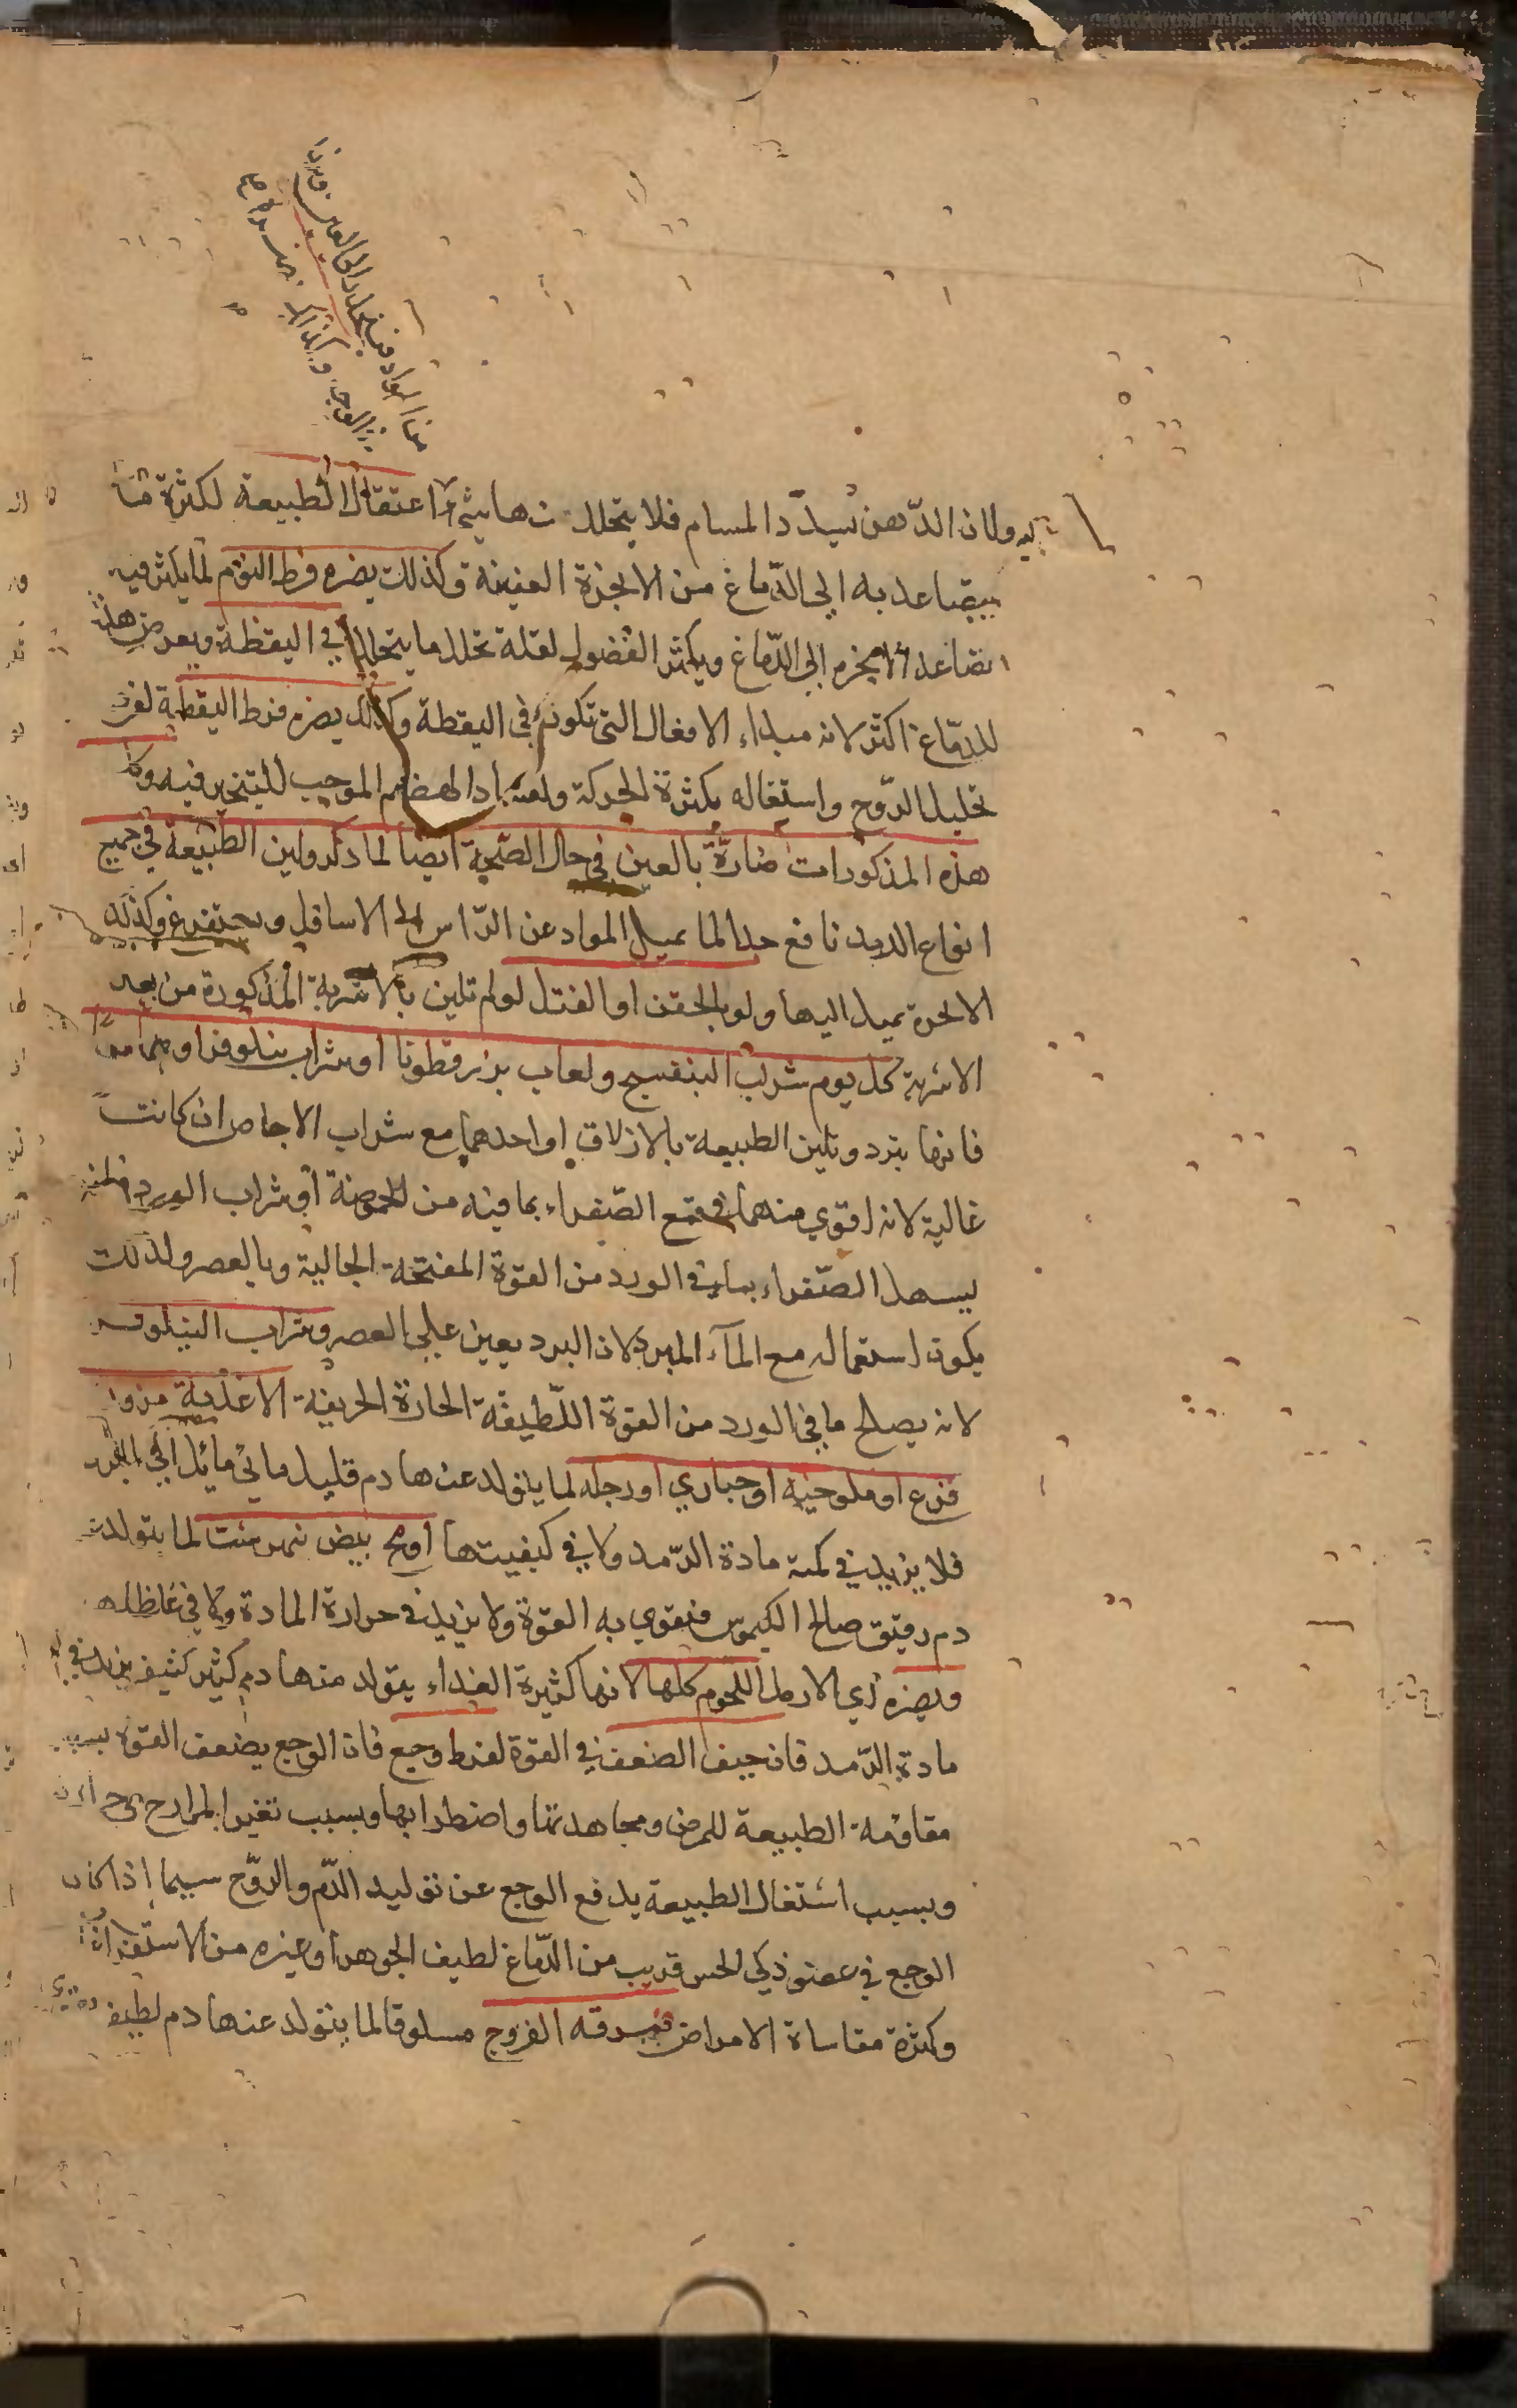 ولان الدّهن يسدّد المسام فلا يتحلل اعتقال الطبيعة لكثرة ما
يتصاعد به الي الدّماغ من الابخرة العفينة وكذلك يضره فرط النوم لما يكثر فيه
تصاعد الابخره الي الدّماغ ويكثر الفضول لقلة تحلل ما يتحلل في اليقظة ويعرض هذا
للدّماغ اكثر لانه مبداء الافعال التي تكون في اليقظة وكذلك يضره فرط اليقظة لفرط
تحليل الدّوح واستغاله بكثرة الحركة ولفساد الهضم الموجب للتبخير فيه وكل
هذه المذكورات ضارّة بالعين في حال الصّحة ايضا لما ذكر ولين الطبيعة في جميع
انواع الرمد نافع جدا لما يميل المواد عن الرّاس الي الاسافل ويستفرغ وكذلك
الابخرة يميل اليها ولو بالحقن او الفتل لو لم تلين بالاشربة المذكورة من بعد
الاشربة كل يوم شراب البنفسج ولعاب بزر قطونا او شراب نيلوفر او هما معا
فانها تبرد وتلين الطبيعة بالازلاق او احدهما مع شراب الاجاص ان كانت
غالبة لانه اقوي منهما في قمع الصّفراء بما فيه من الحموضة او شراب الورد فانه
يسهل الصّفراء بما في الورد من القوة المفتحة الجالية وبالعصر ولذلك
يكون استعماله مع المآء المبرد لان البرد يعين علي العصر وشراب النيلوفر
لانه يصلح ما في الورد من القوة اللّطيفة الحارة الحريفة الاغذية مزورة
قرع او ملوخيه او خبازي او رجله لما يتولد عنها دم قليل مائي مائل الي البرد
فلا يزيد في كمية مادة الرّمد ولا في كيفيتها او مح بيض نمرشت لما يتولد
دم رقيق صالح الكيموس فتقوي به القوة ولا يزيد في حرارة المادة ولا في غلظها
ويضره اي الارمد اللحوم كلها لانها كثيرة الغذاء يتولد منها دم كثير كثيف يزيد في
مادة الرّمد فان خيف الضعف في القوة لفرط وجع فان الوجع يضعف القوة بسبب
مقاومة الطبيعة للمرض ومجاهدتها واضطرابها وبسبب تغير المزاج
وبسبب اشتغال الطبيعة بدفع الوجع عن توليد الدّم والروّح سيما اذا كان
الوجع في عضو ذكي الحس قريب من الدّماغ لطيف الجوهر او غيره من الاستفراغات
وكثرة مقاساة الامراض فمرقه الفروج مسلوقا لما يتولد عنها دم لطيف